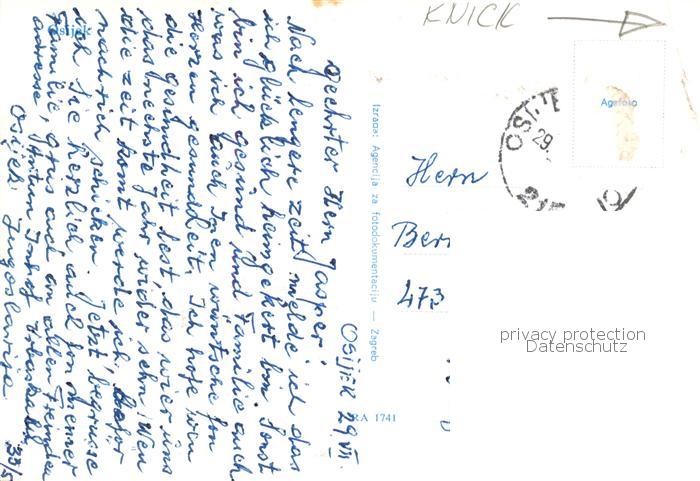 KNICK
Osijek
Osijek 29 VII.
Geehrter Hern Jasper
Nach lengere zeit melde ich das
ich glücklich heimgekert bin. Sonst
bin ich gesund und Familie auch
was ich auch Inen wüntsche fon
Herzen gesundheit. Ich hofe wen
die gesundheit lest, das wier uns
das nechste Jahr wider sehn. Wen
die zeit komt werde ich dafor
nachrich schicken. Jetzt begruise
ich Sie herzlich auch fon meiner
Familie, grus auch an allen Freinden
adresse Antun Imhof
Osijek Jugoslavija 33/5
Izrada: Agencija za fotodokumentaciju — Zagreb
RA 1741
Agefoto
OSIJE
29.
Hern
Ber
473
privacy protection
Datenschutz